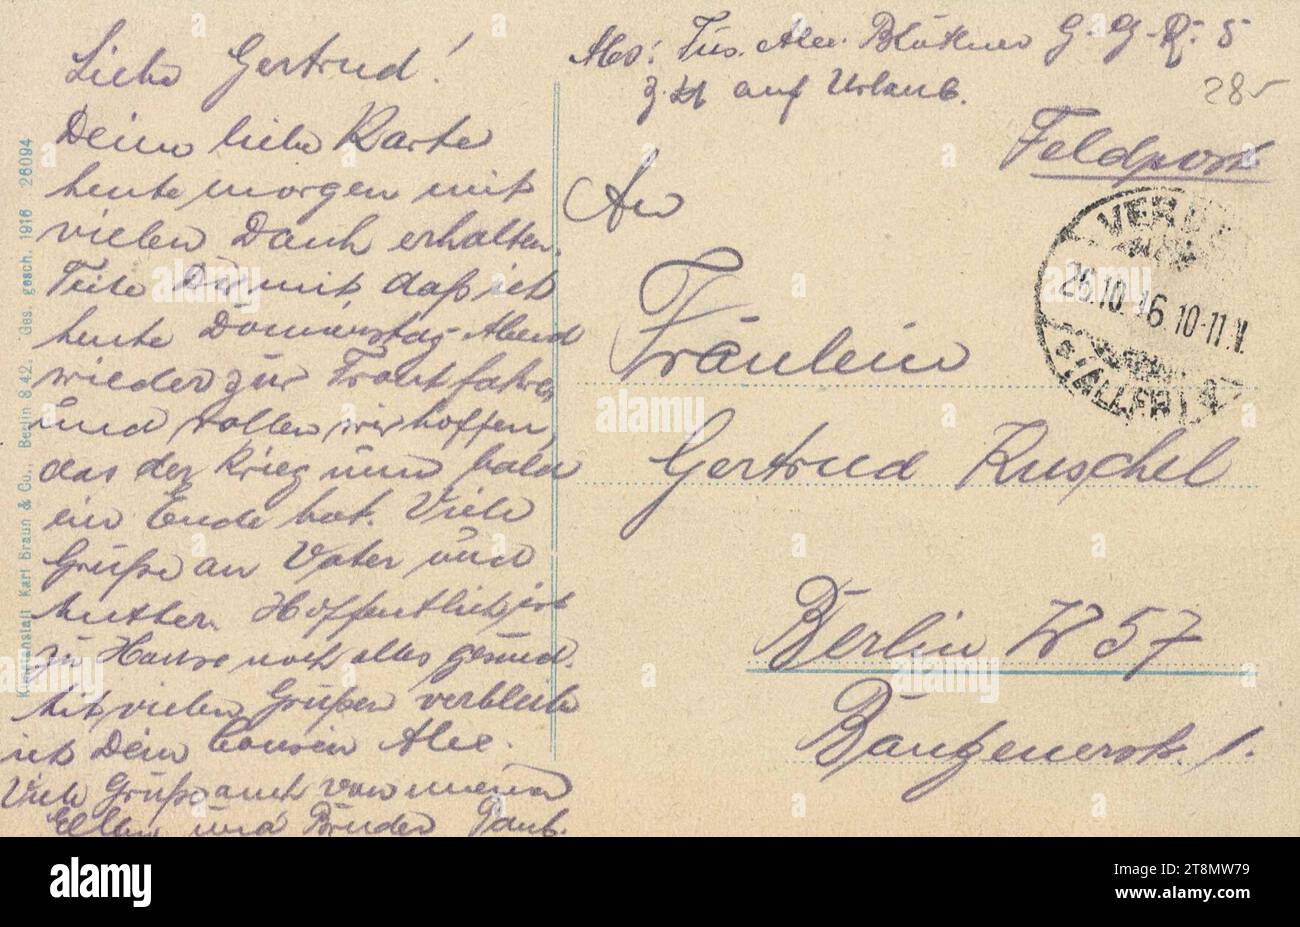 Liebe Gertrud!
Deine liebe Karte
heute morgen mit
vielen Dank erhalten.
Teile Dir mit, daß ich
heute Donnerstag Abend
wieder zur Front fahre,
und wollen wir hoffen,
das der Krieg nun bald
ein Ende hat. Viele
Grüße an Vater und
Mutter. Hoffentlich ist
zu Hause noch alles gesund.
Mit vielen Grüßen verbleibe
ich Dein Cousin Alex.
Viele Grüße auch von meinen
Eltern und Bruder Paul.
Abs: Füs. Alex. Blütkner G. G. R. 5
z. Zt auf Urlaub.
285
Feldpost
An
Fräulein
Gertrud Kuschel
Berlin W 57
Bautzenerstr. 1.
26.10.16 10-11.V.
Kunstanstalt Karl Braun & Co., Berlin S 42. Ges. gesch. 1916 26094
alamy
alamy
Image ID: 2T8MW79
www.alamy.com